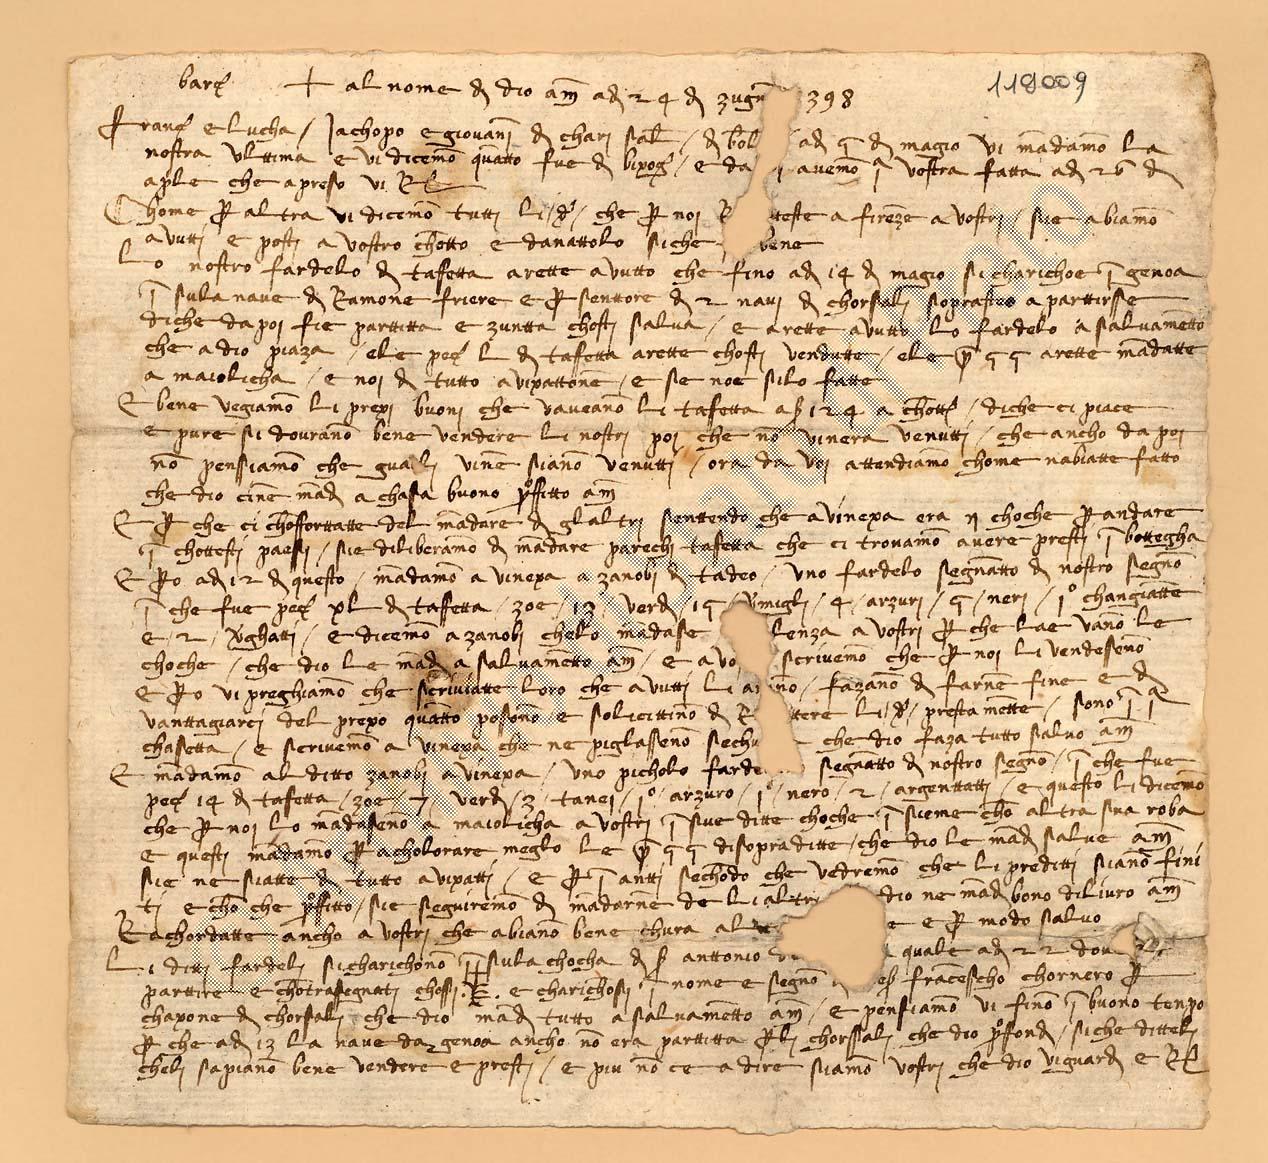 118009
barç + al nome di dio amē adi 24 di zugn 398
Franço e Lucha Jachopo e giovani di chari sal di bol adi di magio vi mādamo la
nostra ulttima e vi dicemo quātto fue di bixog e da avemo ī vostra fatta adi di
a ple che apreso vi
Chome p altra vi dicemo tutti li che p noi teste a firenze a vostri sie abiamo
avutti e posti a vostro chōtto e danattolo siche bene
Lo nostro fardelo di tafetta arette avutto che fino adi 14 di magio si charichoe ī genoa
ī sula nave di Ramone friere e p senttore di 2 navi di chorsali soprastee a parttirsse
diche da poi fie parttitta e zuntta chosti salva e arette avutto lo fardelo a salvamētto
che a dio piaza ele peç L di tafetta arette chosti vendutte ele arette mādatte
a maiolicha e noi di tutto avixattone e se noe silo fatte
E bene vegiamo li prexi buoni che vaveano li tafetta a 124 a chottç diche ci piace
e pure si dourano bene vendere li nostri poi che nō vinera venutti che ancho da poi
nō pensiamo che guali vine siano venutti ora da voi attendiamo chome nabiatte fatto
che dio cine mādi a chasa buono pfitto amē
E p che ci choforttatte del mādare di glaltri senttendo che a vinexa era choche p andare
ī chottesti paesi sie diliberamo di mādare parechi tafetta che ci trovamo avere presti ī bottegha
E po adi 12 di questo mādamo a vinexa a zanobi di tadeo uno fardelo segnatto di nostro segno
ī che fue peç xl di tafetta zoe 13 verdi vmigli 4 arzuri neri 1° changiatte
e 2 e dicemo a zanobi chelo mādase lenza a vostri p che lae vano le
choche che dio le mādi a salvamētto amē e a vo scrivemo che p noi li vendeseno
e po vi preghiamo che scriviatte loro che avutti li no fazano di farne fine e di
vanttagiarci del prexo quātto posono e solicittino di ttere li prestamētte sono ī
chasetta e scrivemo a vinexa che ne piglasseno sechu che dio faza tutto salvo amē
E mādamo al ditto zanobi a vinexa uno picholo farde segnatto di nostro segno ī che fue
peç 14 di tafetta zoe 7 verdi 3 tanei 1° arzuro 1° nero 2 argenttatti e questo li dicemo
che p noi lo mādaseno a maiolicha a vostri ī sue ditte choche ī sieme chō altra sua roba
e questi mādamo p acholorare meglo le disopraditte che dio le mādi salve amē
sie ne siatte di tutto avixatti e p ī antti sechōdo che vedremo che li preditti siano fini
ti e chō che pfitto sie seguiremo di mādarne de li altri dio ne mādi bono dilivro amē
Rachordatte ancho a vostri che abiano bene chura al e e p modo salvo
Li ditti fardeli si charichono ī sula chocha di s anttonio quale adi 22 dou
parttire e chōtrasegnati chosi e charichosi ī nome e segno fracescho chornero p
chaxone di chorsali che dio mādi tutto a salvamētto amē e pensiamo vi fino ī buono tenpo
p che adi 13 la nave da genoa ancho nō era parttitta pli chorssali che dio pfondi siche dittelj
cheli sapiano bene vendere e presti e piu nō ce a dire siamo vostri che dio vi guardi e